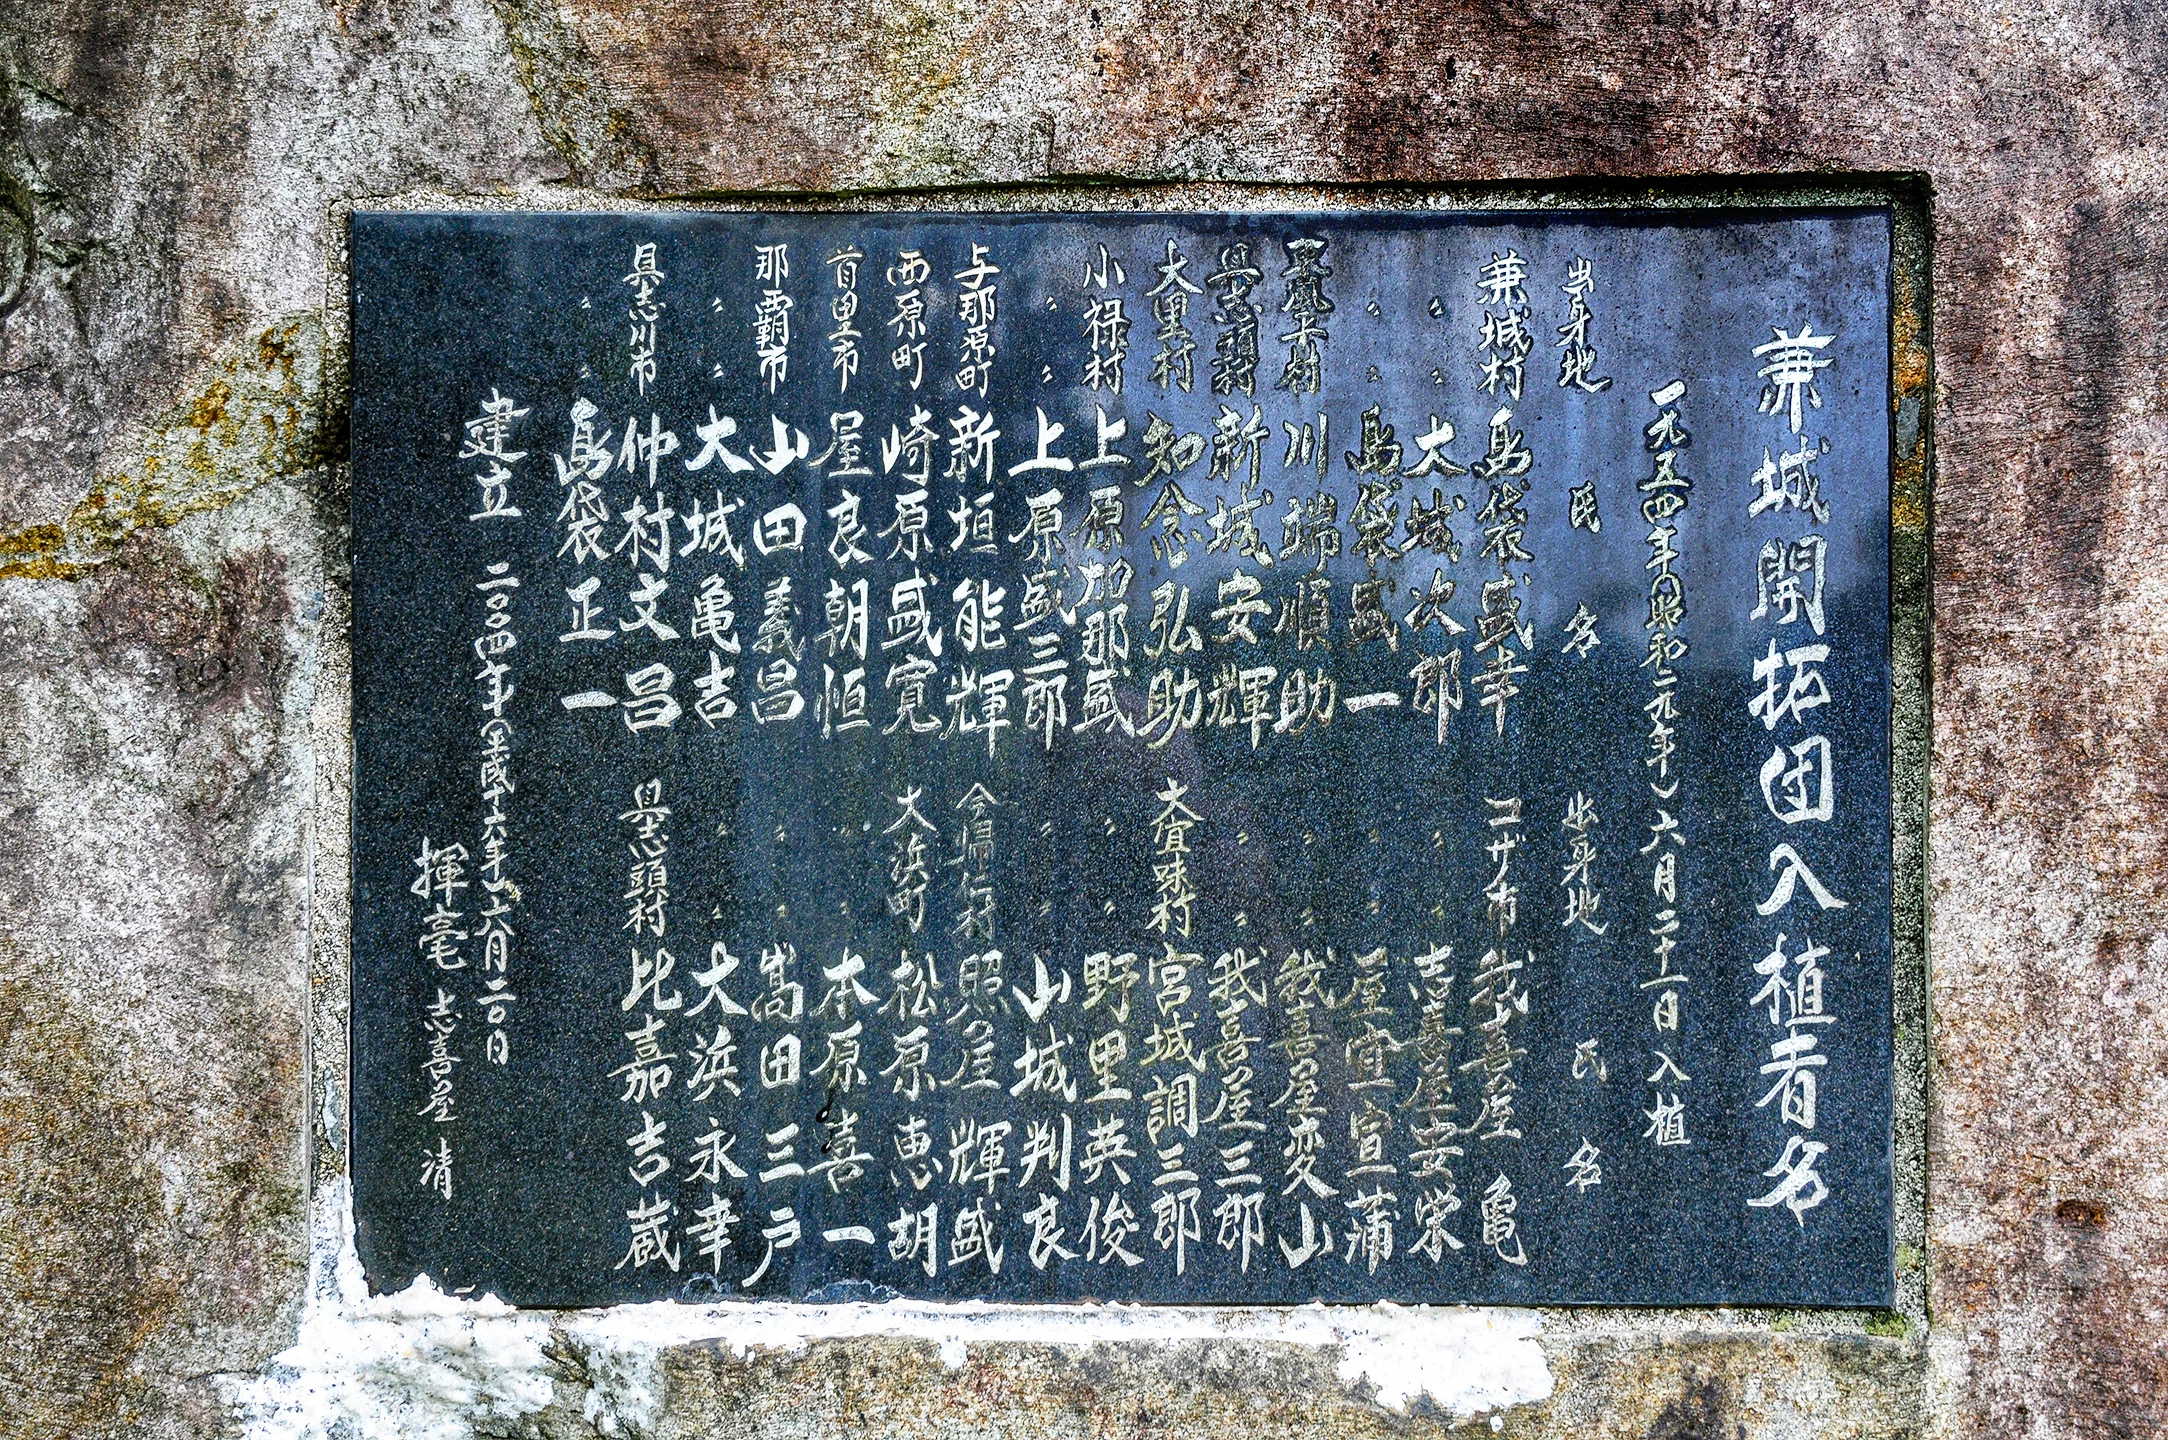 兼城開拓団入植者名
一九五四年(昭和二九年)六月二十一日入植
出身地 氏名 出身地 氏名
兼城村 島袋盛幸 コザ市 我喜屋亀
〃 〃 大城次郎 〃 〃 志喜屋安栄
〃 〃 島袋盛一 〃 〃 屋宜宣蒲
東風平村 川端順助 〃 〃 我喜屋変山
具志頭村 新城安輝 〃 〃 我喜屋三郎
大里村 知念弘助 大宜味村 宮城調三郎
小禄村 上原加那盛 〃 〃 野里英俊
〃 〃 上原盛三郎 〃 〃 山城判良
与那原町 新垣能輝 今帰仁村 照屋輝盛
西原町 崎原盛寛 大浜町 松原恵胡
首里市 屋良朝恒 〃 〃 本原喜一
那覇市 山田義昌 〃 〃 嵩田三戸
〃 〃 大城亀吉 〃 〃 大浜永幸
具志川市 仲村文昌 具志頭村 比嘉吉蔵
〃 〃 島袋正一
建立 二〇〇四年(平成十六年)六月二〇日
揮毫 志喜屋 清